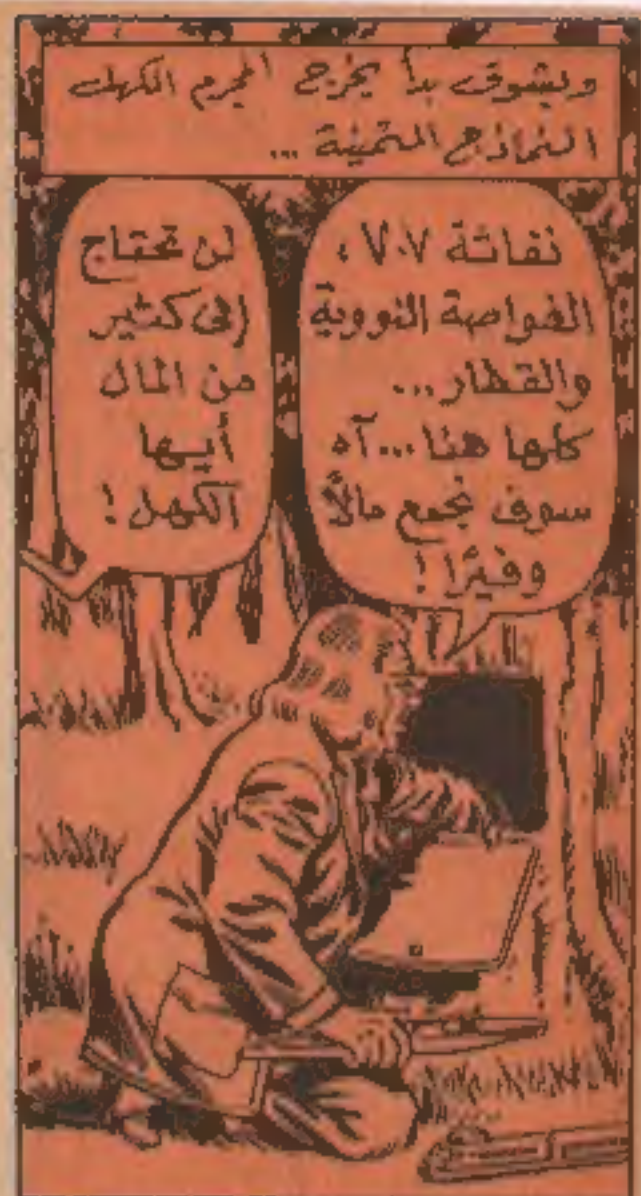 وبشوق بدأ يخرج المجرم الكهل
النماذج الثمينة ...
نفاثة ٧٠٧،
الغواصة النووية
والقطار...
كلها هنا...آه
سوف نجمع مالاً
وفيرًا!
لن تحتاج
إلى كثير
من المال
أيها
الكهل!